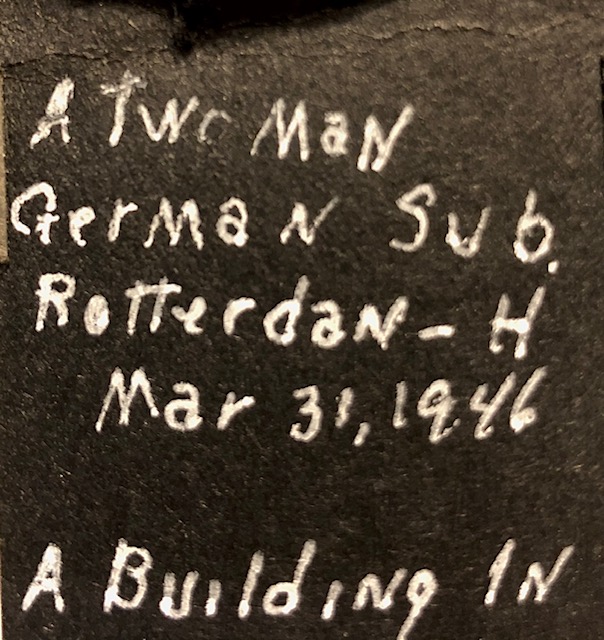 A Two Man
German Sub.
Rotterdan - H
Mar 31, 1946
A Building IN